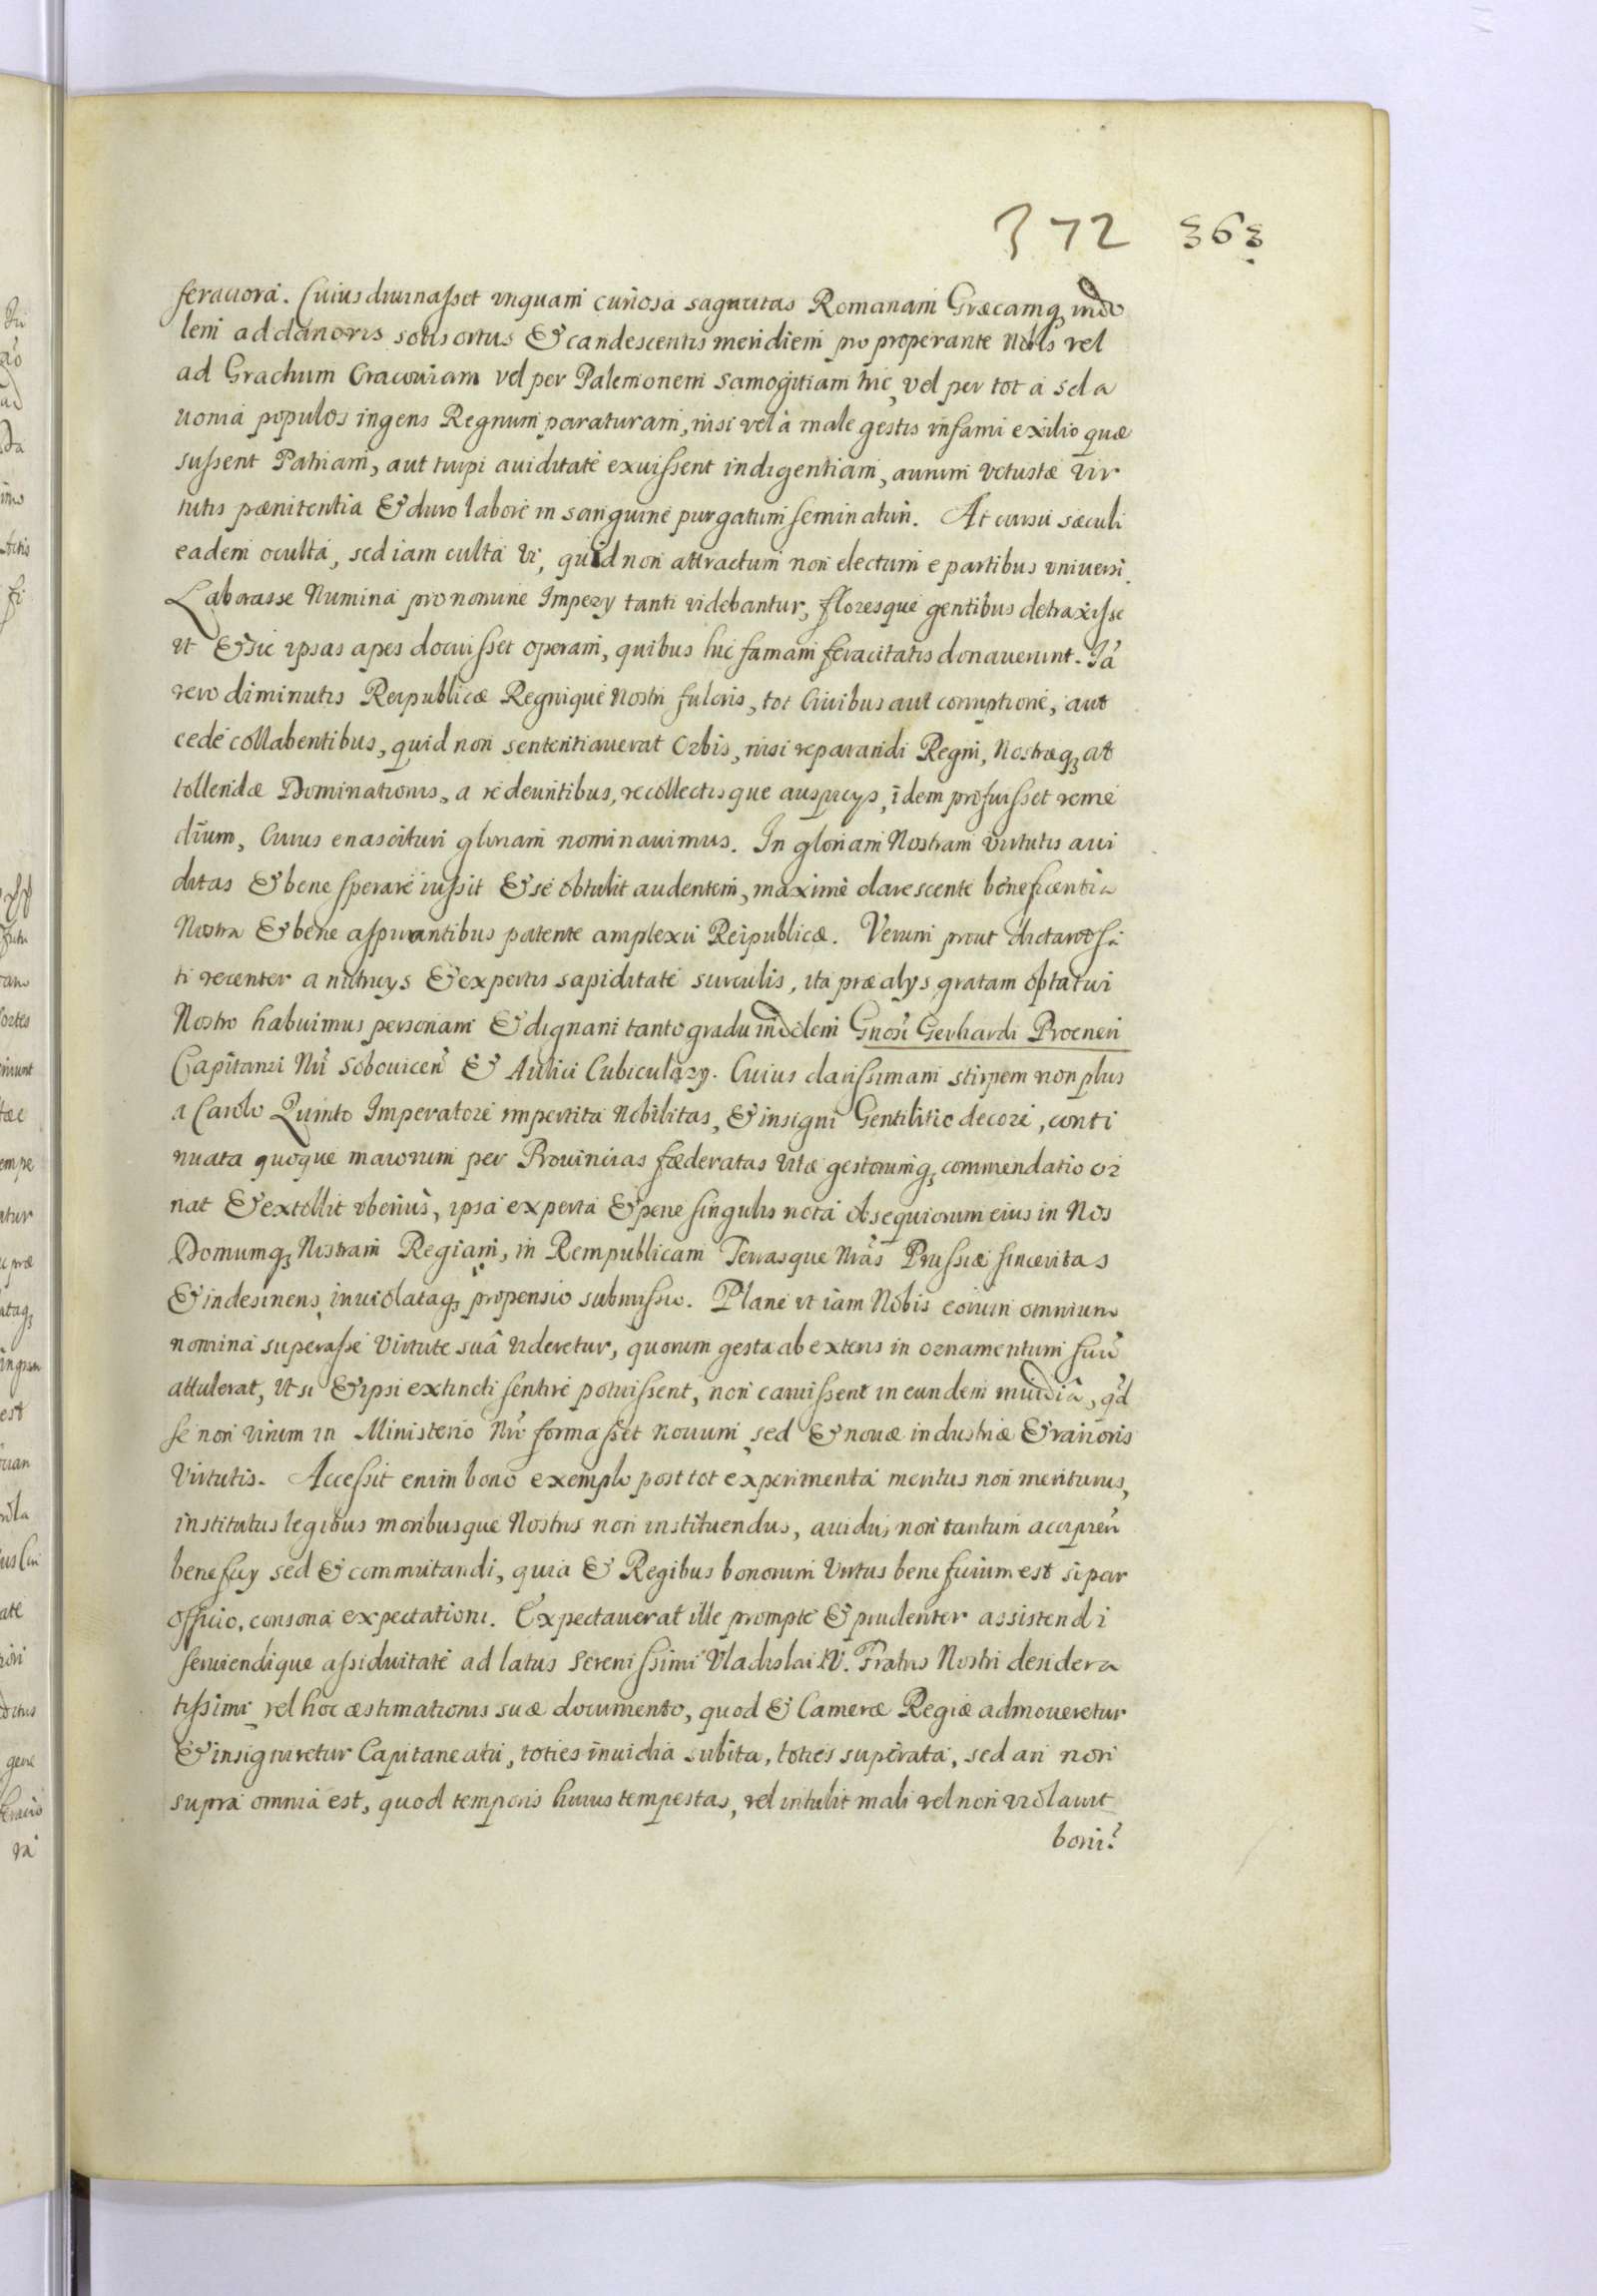 372 363
feraciora. Cuius diuinasset unquam curiosa sagacitas Romanam Græcamq3 indo
lem ad clarioris solis ortus & candescentis meridiem pro properante Nobis vel
ad Grachum Cracouiam vel per Palemonem Samogitiam huc, vel per tot a scla
uonia populos ingens Regnum paraturam, nisi vel a male gestis infami exilio quæ
sussent Patriam, aut turpi auiditate exuissent indigentiam, aurum vetustæ vir
tutis pænitentia & duro labore in sanguine purgatum seminatum. At cursu sæculi
eadem oculta, sed iam culta vi, quid non attractum non electum e partibus vniuersi.
Laborasse Numina pro nomine Impery tanti videbantur, floresque gentibus detraxisse
vt & sic ipsas apes docuisset operam, quibus huc famam feracitatis donauerunt. Iã
vero diminutis Reipublicæ Regnique Nostri fulcris, tot Ciuibus aut corruptione, aut
cede collabentibus, quid non sententiauerat Orbis, nisi reparandi Regni, Nostræq3 at
tollendæ Dominationis, a redeuntibus, recollectisque auspicys, idem profuisset reme
dium, Cuius enascituri gloriam nominauimus. In gloriam Nostram virtutis aui
ditas & bene sperare iussit & se obtulit audentem, maxime clarescente beneficentia
Nostra & bene aspirantibus patente amplexu Reipublicæ. Verum prout dictarot si
ti recenter a nutricys & expertis sapiditate surculis, ita præ alys gratam optatui
Nostro habuimus personam & dignam tanto gradu indolem Gnosi Gerhardi Proeneri
Capitanei Nri Sobouicen & Aulici Cubiculary. Cuius clarissimam stirpem non plus
a Carolo Quinto Imperatore impertita Nobilitas, & insigni Gentilitio decore, conti
nuata quoque maiorum per Prouincias fœderatas vitæ gestorumq3 commendatio or
nat & extollit vberius, ipsa experta & pene singulis nota obsequiorum eius in Nos
Domumq3 Nostram Regiam, in Rempublicam Terrasque Nras Prussiæ sinceritas
& indesinens, inuiolataq3 propensio submissio. Plane vt iam Nobis eorum omnium
nomina superasse virtute suâ videretur, quorum gesta ab exteris in ornamentum suũ
attulerat, Vt si & ipsi extincti sentire potuissent, non caruissent in eundem inuidiâ, qd
se non virum in Ministerio Nro formasset nouum, sed & nouæ industriæ & rarioris
Virtutis. Accessit enim bono exemplo post tot experimenta meritus non meriturus,
institutus legibus moribusque Nostris non instituendus, auidus non tantum accipien
benefficy sed & commutandi, quia & Regibus bonorum virtus beneficium est si par
officio, consona expectationi. Expectauerat ille prompte & prudenter assistendi
seruiendique assiduitate ad latus Serenissimi Vladislai IV. Fratris Nostri desidera
tissimi vel hoc æstimationis suæ documento, quod & Cameræ Regiæ admoueretur
& insigniretur Capitaneatu, toties inuidia subita, toties superata, sed an non
supra omnia est, quod temporis huius tempestas, vel intulit mali vel non violauit
boni?